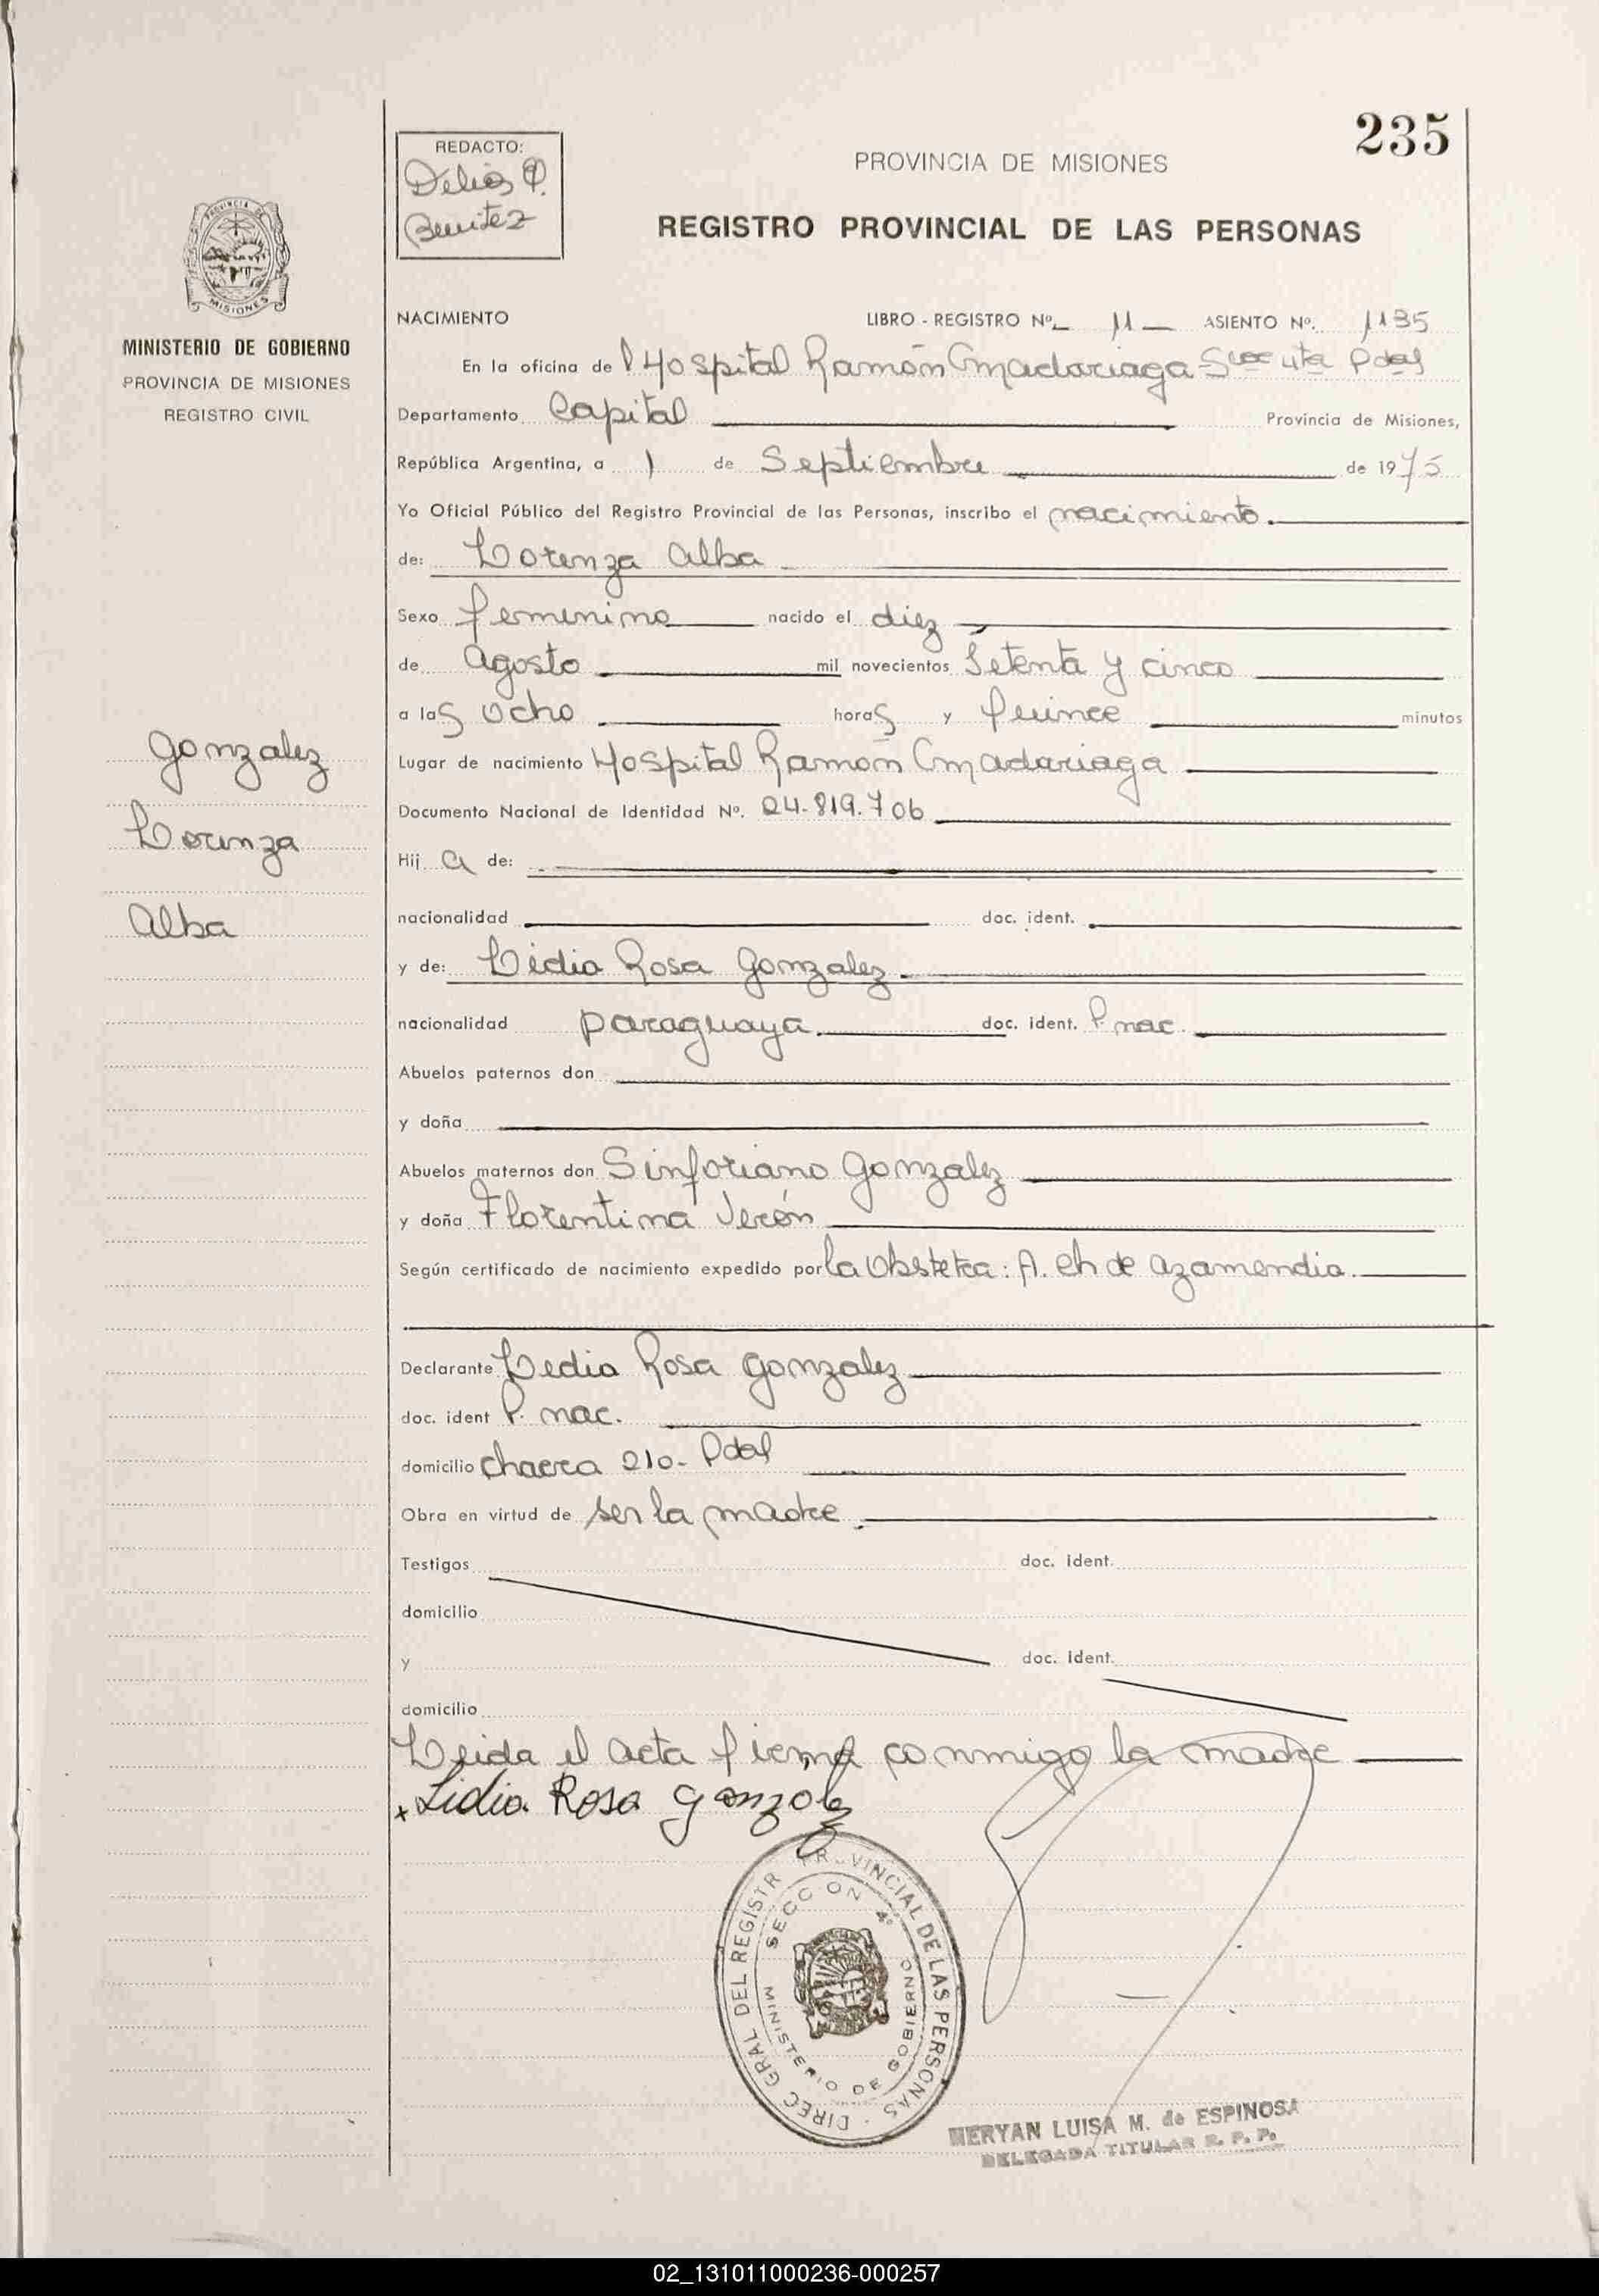 235
REDACTO:
Delia
Benitez
PROVINCIA DE MISIONES
REGISTRO PROVINCIAL DE LAS PERSONAS
PROVINCIA DE
MISIONES
MINISTERIO DE GOBIERNO
PROVINCIA DE MISIONES
REGISTRO CIVIL
NACIMIENTO LIBRO - REGISTRO Nº 11 ASIENTO Nº. 1135
En la oficina de l Hospital Ramón Madariaga Scc 4ta Pdas
Departamento Capital Provincia de Misiones,
República Argentina, a 1 de Septiembre de 1975
Yo Oficial Público del Registro Provincial de las Personas, inscribo el nacimiento.
de: Lorenza Alba
Sexo femenino nacido el diez
de Agosto mil novecientos Setenta y cinco
a las ocho horas y quince minutos
Gonzalez
Lugar de nacimiento Hospital Ramón Madariaga
Documento Nacional de Identidad Nº. 24.819.706
Lorenza
Hij a de:
Alba
nacionalidad doc. ident.
y de: Lidia Rosa Gonzalez.
nacionalidad paraguaya. doc. ident. P. nac.
Abuelos paternos don
y doña
Abuelos maternos don Sinforiano Gonzalez
y doña Florentina Verón
Según certificado de nacimiento expedido por la Obstetra: A. Ch de Azamendia.
Declarante Lidia Rosa Gonzalez
doc. ident P. nac.
domicilio chacra 210- Pdas
Obra en virtud de ser la madre.
Testigos doc. ident.
domicilio
y doc. ident.
domicilio
Leida el acta firma conmigo la madre
x Lidia Rosa Gonzalez
DIREC GRAL DEL REGISTR PROVINCIAL DE LAS PERSONAS
SECCION 4º
MINISTERIO DE GOBIERNO
MERYAN LUISA M. de ESPINOSA
DELEGADA TITULAR R. P. P.
02_131011000236-000257